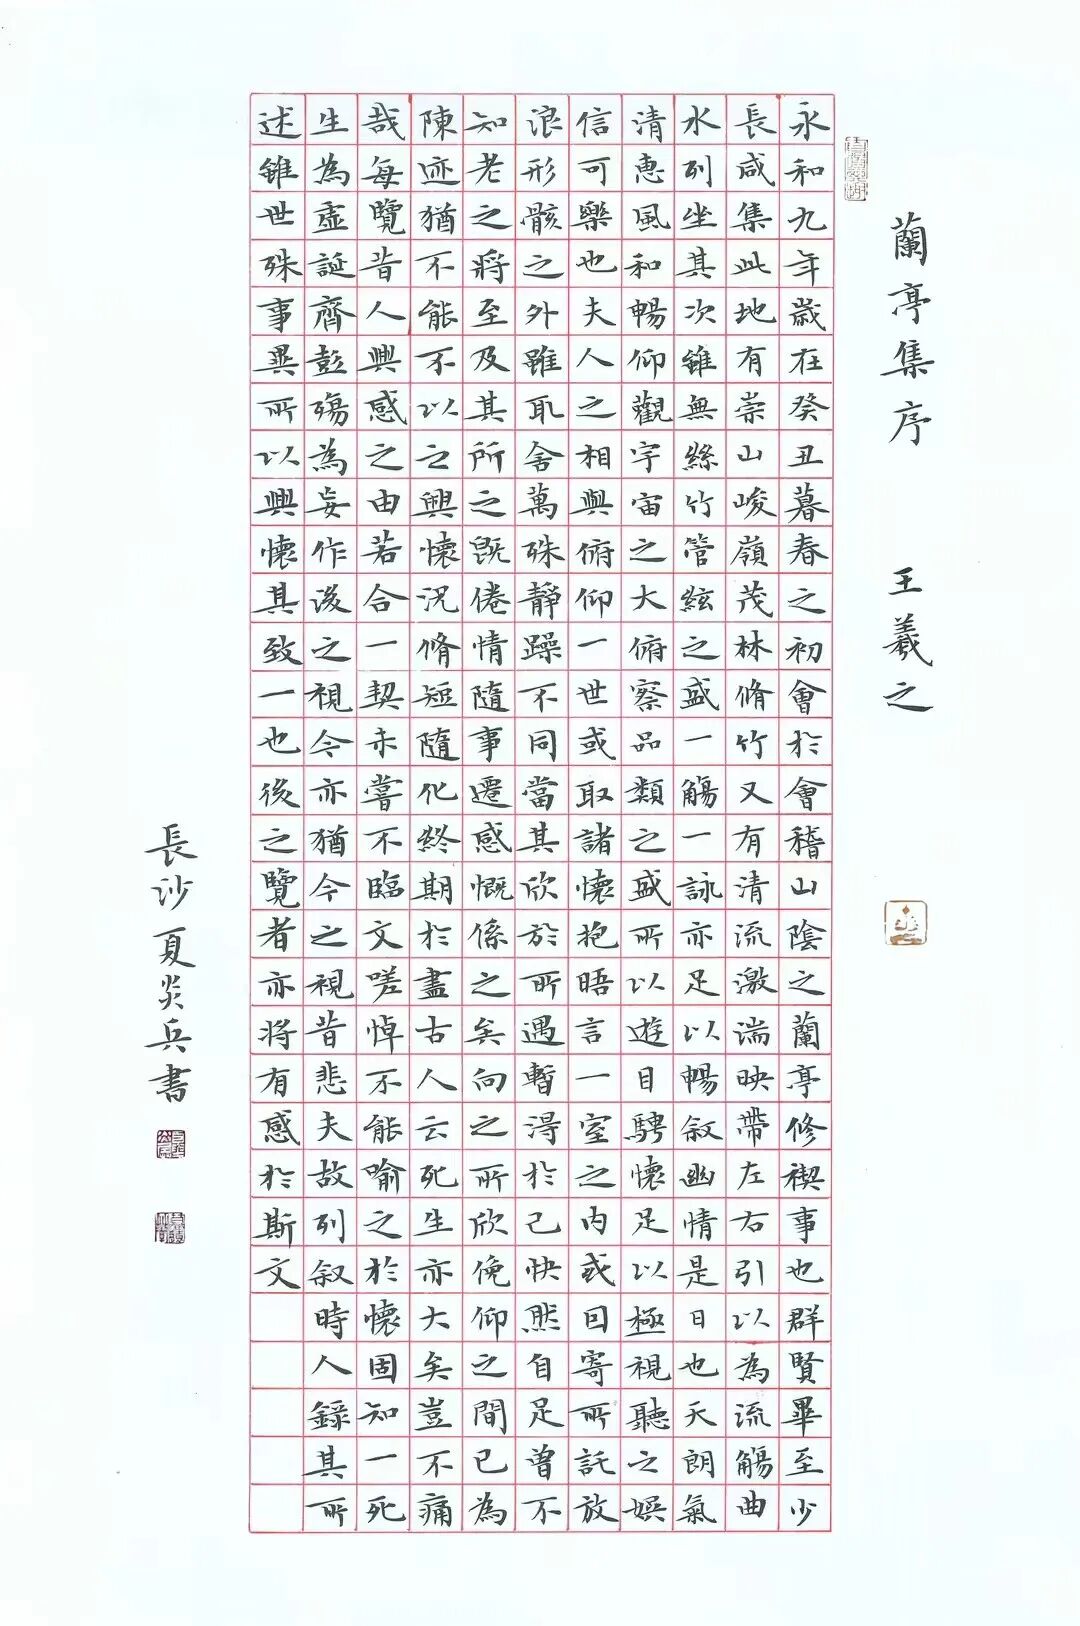 蘭亭集序 王羲之
永和九年歲在癸丑暮春之初會於會稽山陰之蘭亭修禊事也群賢畢至少
長咸集此地有崇山峻嶺茂林脩竹又有清流激湍映帶左右引以為流觴曲
水列坐其次雖無絲竹管絃之盛一觴一詠亦足以暢叙幽情是日也天朗氣
清惠風和暢仰觀宇宙之大俯察品類之盛所以遊目騁懷足以極視聽之娛
信可樂也夫人之相與俯仰一世或取諸懷抱晤言一室之內或因寄所託放
浪形骸之外雖取舍萬殊靜躁不同當其欣於所遇暫得於己快然自足曾不
知老之將至及其所之既倦情隨事遷感慨係之矣向之所欣俛仰之間已為
陳迹猶不能不以之興懷況脩短隨化終期於盡古人云死生亦大矣豈不痛
哉每覽昔人興感之由若合一契未嘗不臨文嗟悼不能喻之於懷固知一死
生為虛誕齊彭殤為妄作後之視今亦猶今之視昔悲夫故列叙時人錄其所
述雖世殊事異所以興懷其致一也後之覽者亦將有感於斯文
長沙夏炎兵書